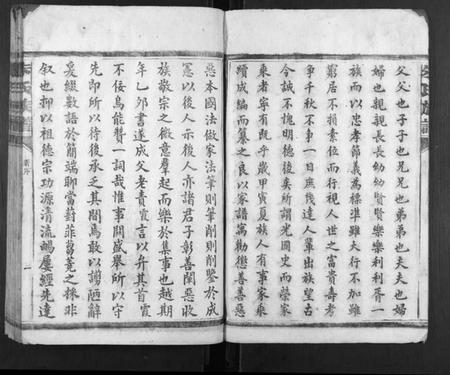 父父也子子也兄兄也弟弟也夫夫也婦
婦也親親長長幼幼賢賢樂樂利利胥一
族而以忠孝節義為標準雖大行不加雖
窮居不損素位而行視人世之富貴壽考
爭千秋不爭一日庶幾達人輩出族望古
今誠不愧明德後矣所謂光國史而榮家
乘者寧有既乎歲甲寅夏族人有事家乘
續成編而纂之良以家譜寓勸懲善善惡
惡本國法倣家法筆則筆削則削鑒於成
憲以後人示後人亦諸君子彰善闡惡收
族敬宗之微意羣起而樂於集事也越期
年乙卯書遂成父老責霞言以弁其首霞
不佞烏能贊一詞哉惟事關盛舉所以守
先即所以待後承乏其間烏敢以謭陋辭
爰綴數語於簡端聊當封菲蒭蕘之採非
叙也抑以祖德宗功源清流暢屢經先達
新序
一